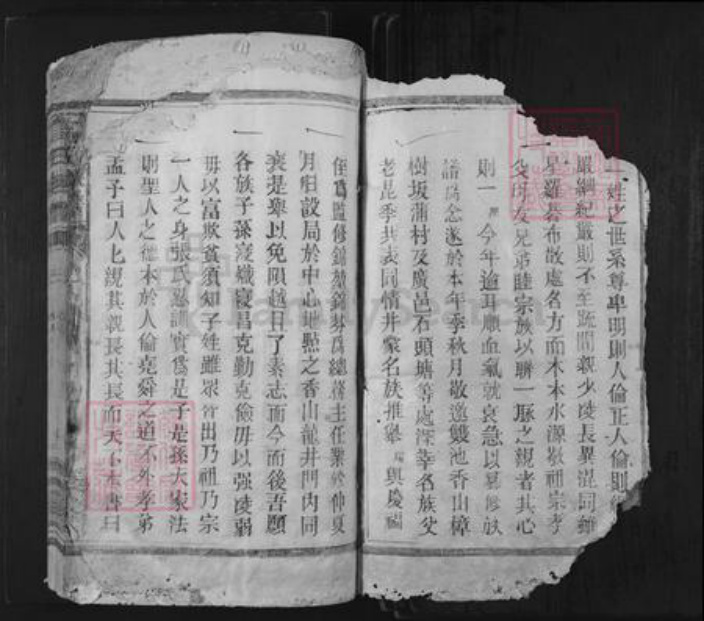 一姓之世系尊卑明則人倫正人倫則
嚴綱紀嚴則不至疏間親少凌長異混同雖
星羅碁布散處名方而木本水源敬祖宗孝
父母友兄弟睦宗族以聯一脈之親者其心
則一 今年逾耳順血氣就衰急以修族
譜為念遂於本年季秋月敬邀雙池香山樟
樹坂蒲村及廣邑石頭塘等處深幸名族父
老昆季共表同情并蒙名族推舉 與慶福
侄為監修錦 錦芬為總務主任業於仲夏
月旧設局於中心地點之香山龍井門內同
襄是舉以免隕越日了素志而今而後吾願
各族子孫寢熾寢昌克勤克儉毋以强凌弱
毋以富欺貧須知子姓雖眾皆出乃祖乃宗
一人之身張氏忍訓實為是子是孫大家法
則聖人之德本於人倫堯舜之道不外孝弟
孟子曰人人親其親長其長而天下 書曰